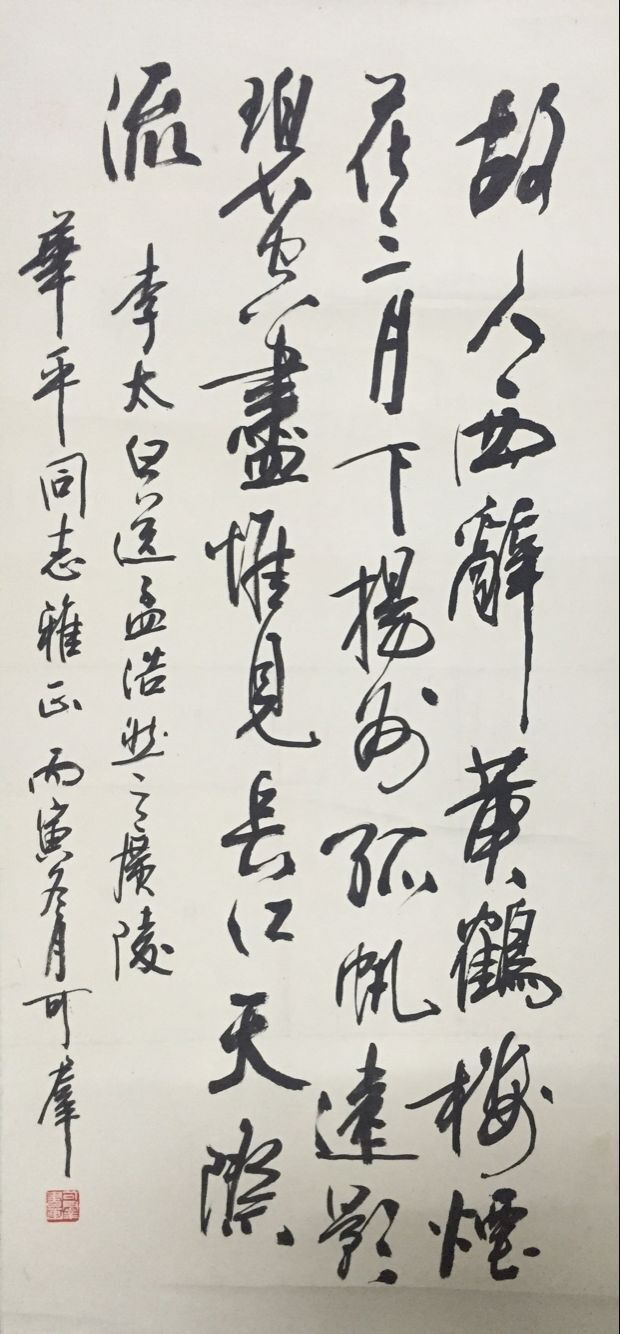 故人西辭黄鶴樓煙
花三月下揚州孤帆遠影
碧空盡惟見長江天際
流
李太白送孟浩然之廣陵
華平同志雅正 丙寅冬月可羣